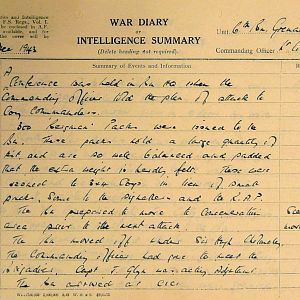 WAR DIARY
or
INTELLIGENCE SUMMARY
(Delete heading not required).
Unit 6th Bn. Grenad
Commanding Officer Lt
Summary of Events and Information
and Intelligence
F.S. Regs., Vol. I.
be enclosed in A.F.
available, and for
the cover will be
Dec 1943
A
Conference was held in Bn HQ when the
Commanding Officer told the plan of attack to
Coy Commanders.
300 Bergan Packs were issued to the
Bn. These packs hold a large quantity of
kit, and are so well balanced and padded
that the extra weight is hardly felt. These were
issued to Coys in lieu of small
packs. Some to the Signallers and the R.A.P.
The Bn prepared to move to Concentration
area prior to the next attack.
The Bn moved off under Sir Hugh Cholmeley,
The Commanding Officer had gone to meet the
Brigadier. Capt T. Glyn was acting Adjutant
The Bn arrived at